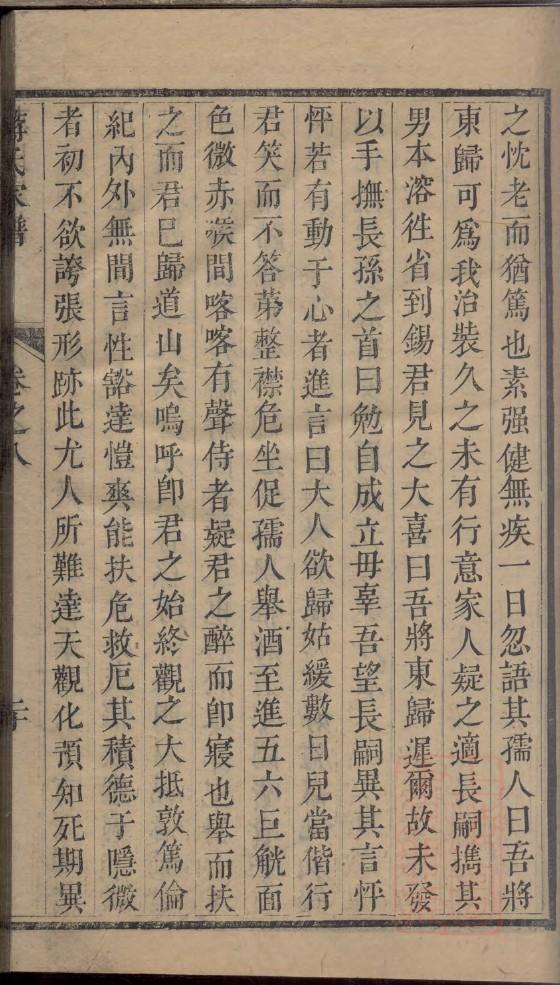 之忱老而猶篤也素强健無疾一日忽語其孺人曰吾將
東歸可爲我治裝久之未有行意家人疑之適長嗣擕其
男本溶徃省到錫君見之大喜曰吾將東歸遲爾故未發
以手撫長孫之首曰勉自成立毋辜吾望長嗣異其言怦
怦若有動于心者進言曰大人欲歸姑緩數日兒當偕行
君笑而不答苐整襟危坐促孺人舉酒至進五六巨觥面
色微赤喉間喀喀有聲侍者疑君之醉而卽寢也舉而扶
之而君已歸道山矣嗚呼卽君之始終觀之大抵敦篤倫
紀內外無間言性豁達愷爽能扶危救厄其積德于隱微
者初不欲誇張形跡此尤人所難達天觀化預知死期異
蔣氏家譜 卷之八